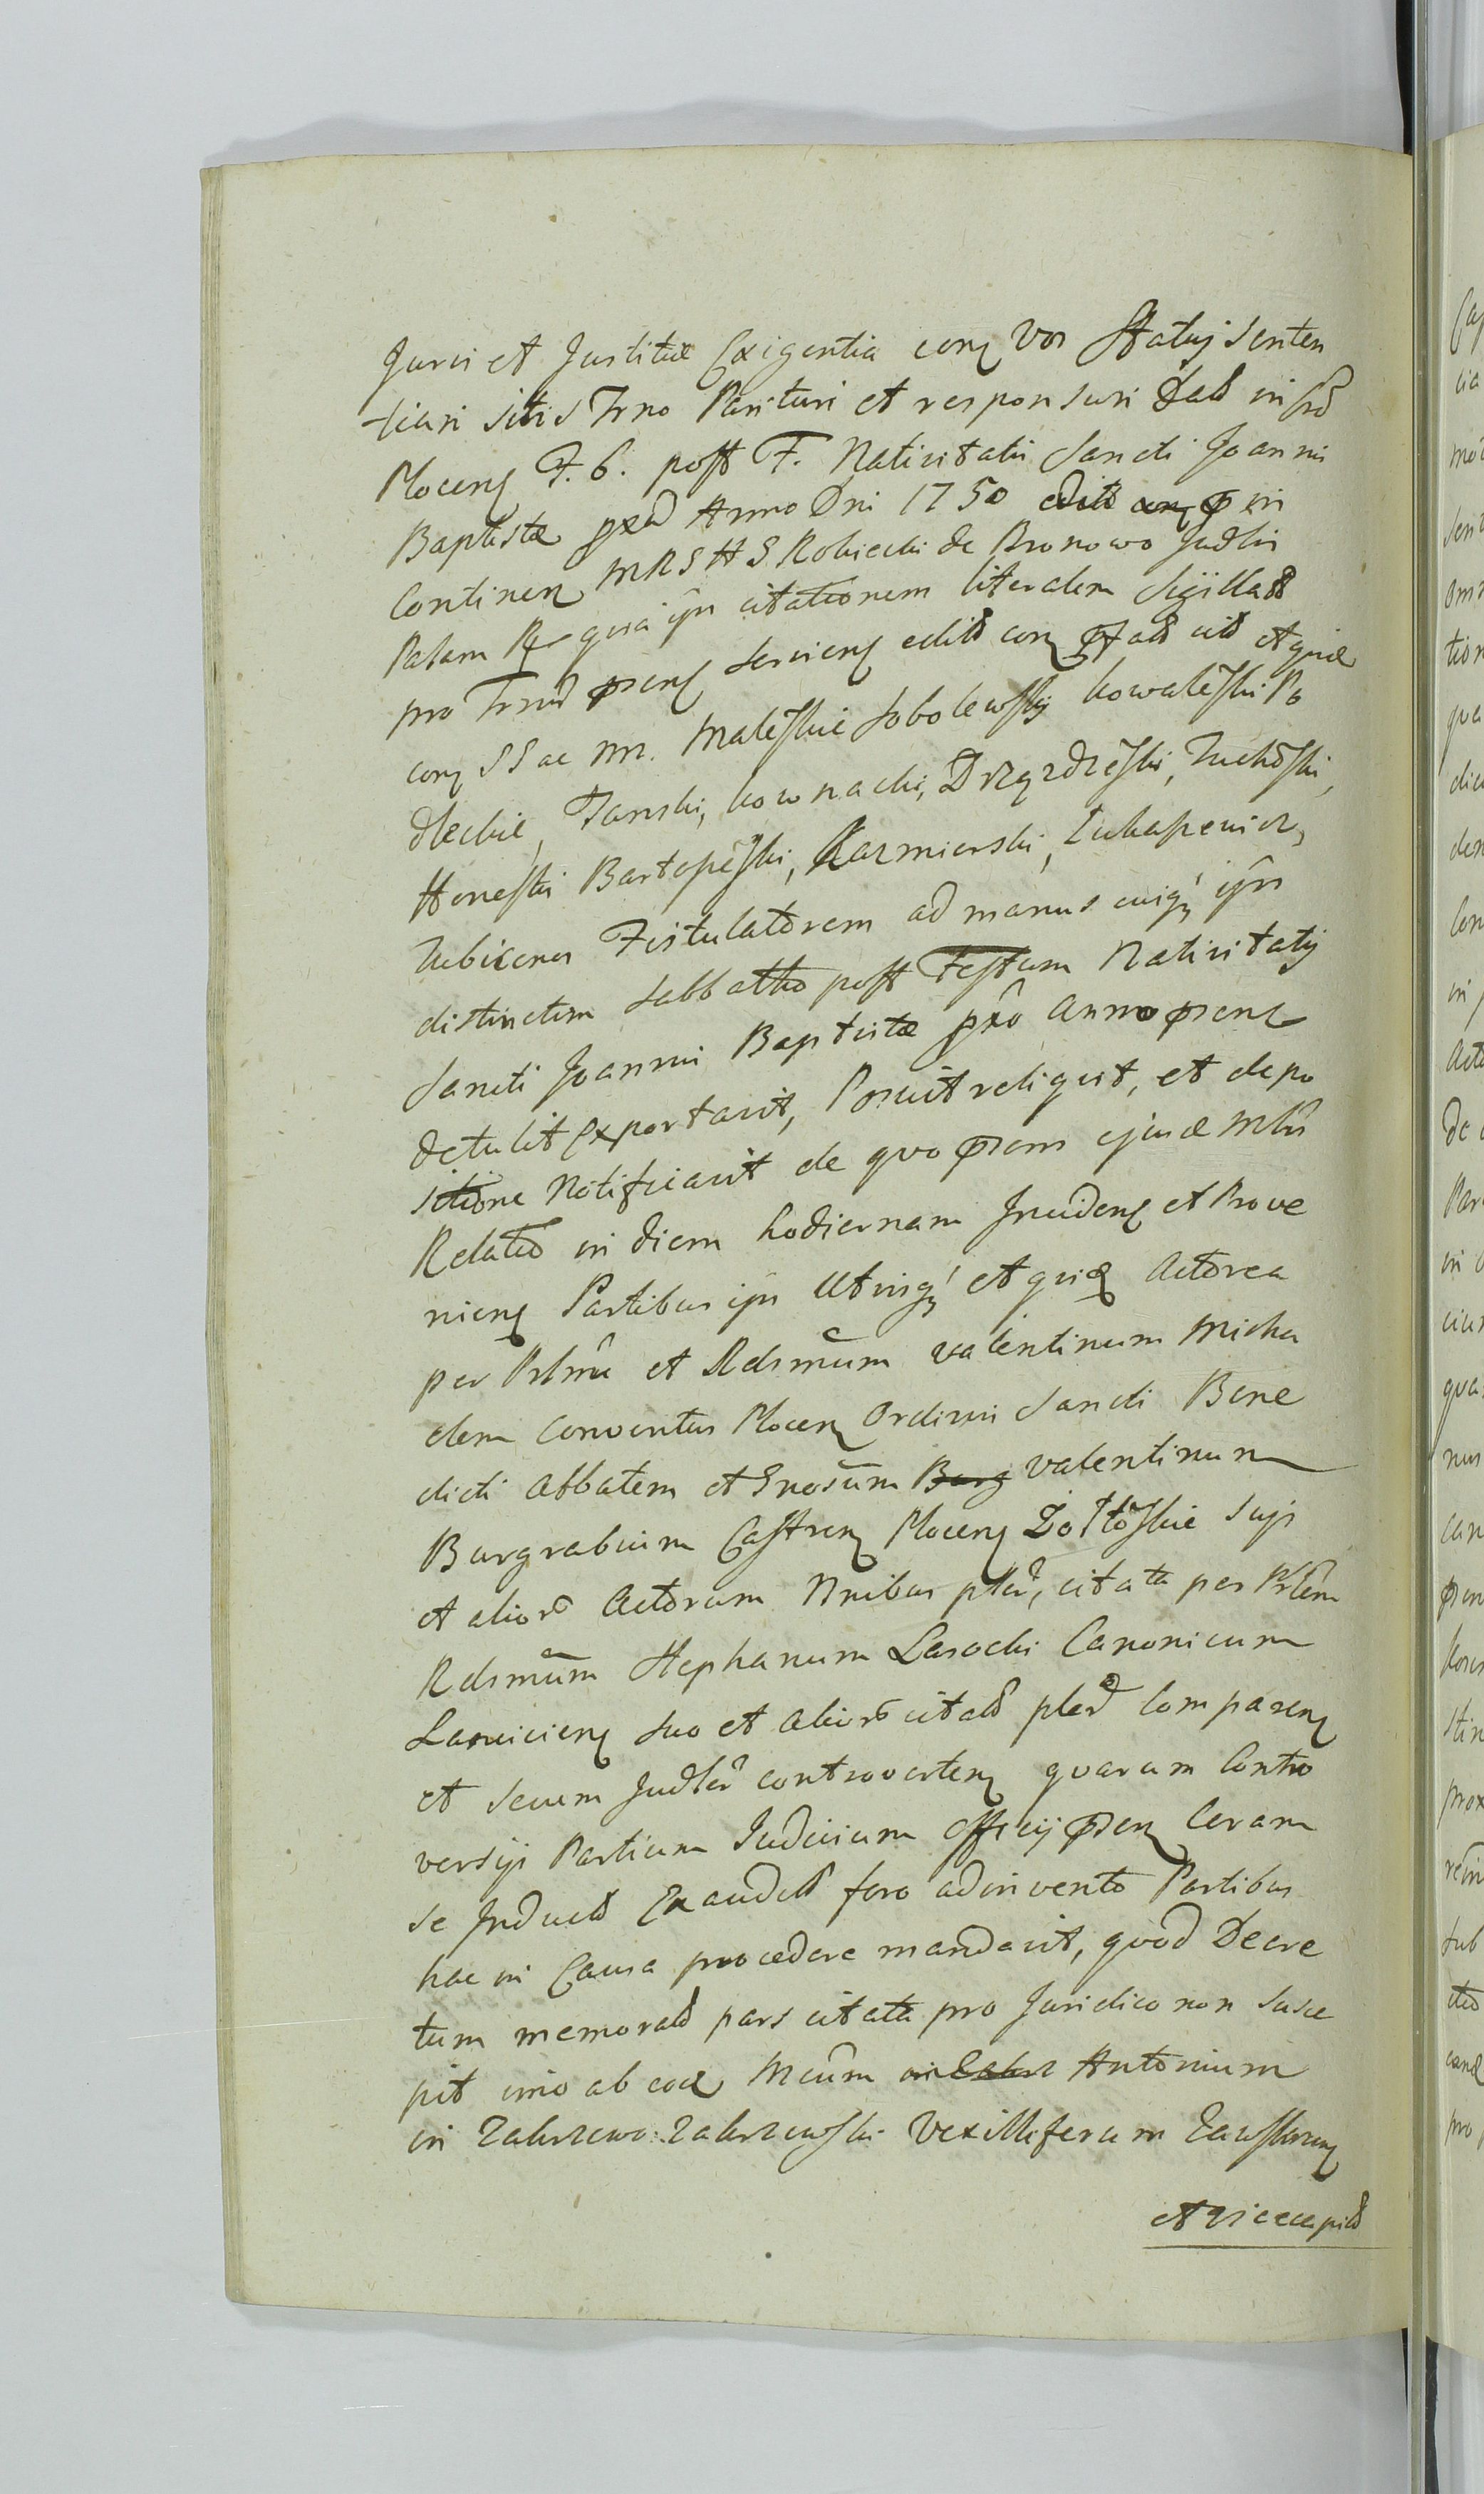 Juris et Justitiæ Exigentia conq vos Statuj Senten
tiari sitis Trno Parituri et responsuri Dat in Crō
Plocenq F. 6. post F. Nativitatis Sancti Joannis
Baptistæ pxa Anno Dni 1750 edit in
Continen MRSHS Robiecki de Bronowo Judlis
Palam Rq quia ijn citationem literalem Sigillat
pro Trno psenq Servienq edit conq cit et quidē
conq SS ac nn. Maleskie Sobolewskij kowaleski Po
dleckie, Tanski, kownacki, Drzązdzeski, Tuchoski,
Honeski Bartopeski, Kazmierski, Łukapewicz,
Tubicenes Fistulatorem ad manus cuiqz ijn
distinctim Sabbatho post Festum Nativitatij
Sancti Joannis Baptistæ pxo anno psenq
detulit Exportavit, Posuit reliquit, et depo
sitione Notificavit de quo psens ejusd Mlis
Relatio in diem hodiernam Incidenq et Prove
nienq Partibus ijn Utrisqz et quidē Actorea
per Prlm et Rdsmum Valentinum Micha
elem Conventus Plocenq Ordinis Sancti Bene
dicti Abbatem et Gnosum Burg Valentinum
Burgrabium Castrenq Plocenq Żołtoskie Suis
et alior Actorum Nnibus pler, citata per Prlem
Rdsmum Stephanum Lasocki Canonicum
Lanciciēnq suo et alior citat pler Comparenq
et Secum Judler controvertenq quarum Contro
versijs Partium Judicium Officij psenq Coram
se Induct Exaudit foro adinvento Partibus
hac in Causa procedere mandavit, quod Decre
tum memorat pars citata pro Juridico non susce
pit imo ab eod Mcum in Zakrz Antonium
in Zakrzewo Zakrzewski Vexilliferum Zawskrenq
et Vicecapit